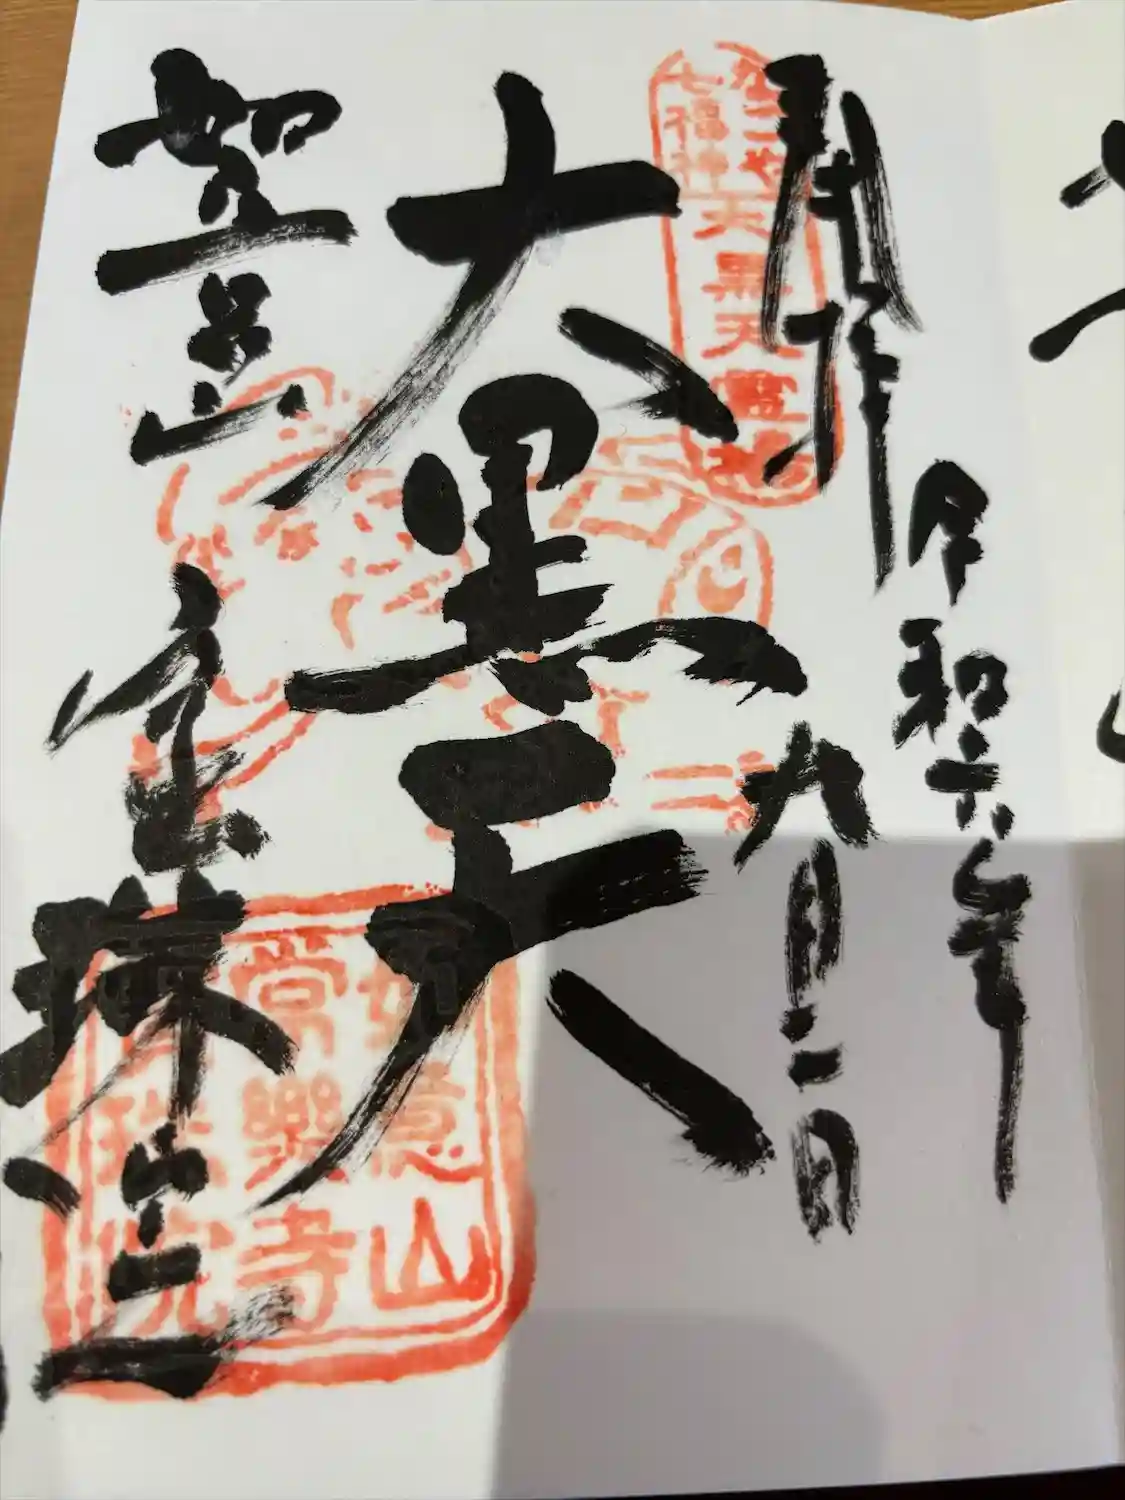 奉拝
令和六年
九月二日
七福神
大黒天霊場
大黒天
如意山
宝珠院
如意山
常樂寺
寳珠院